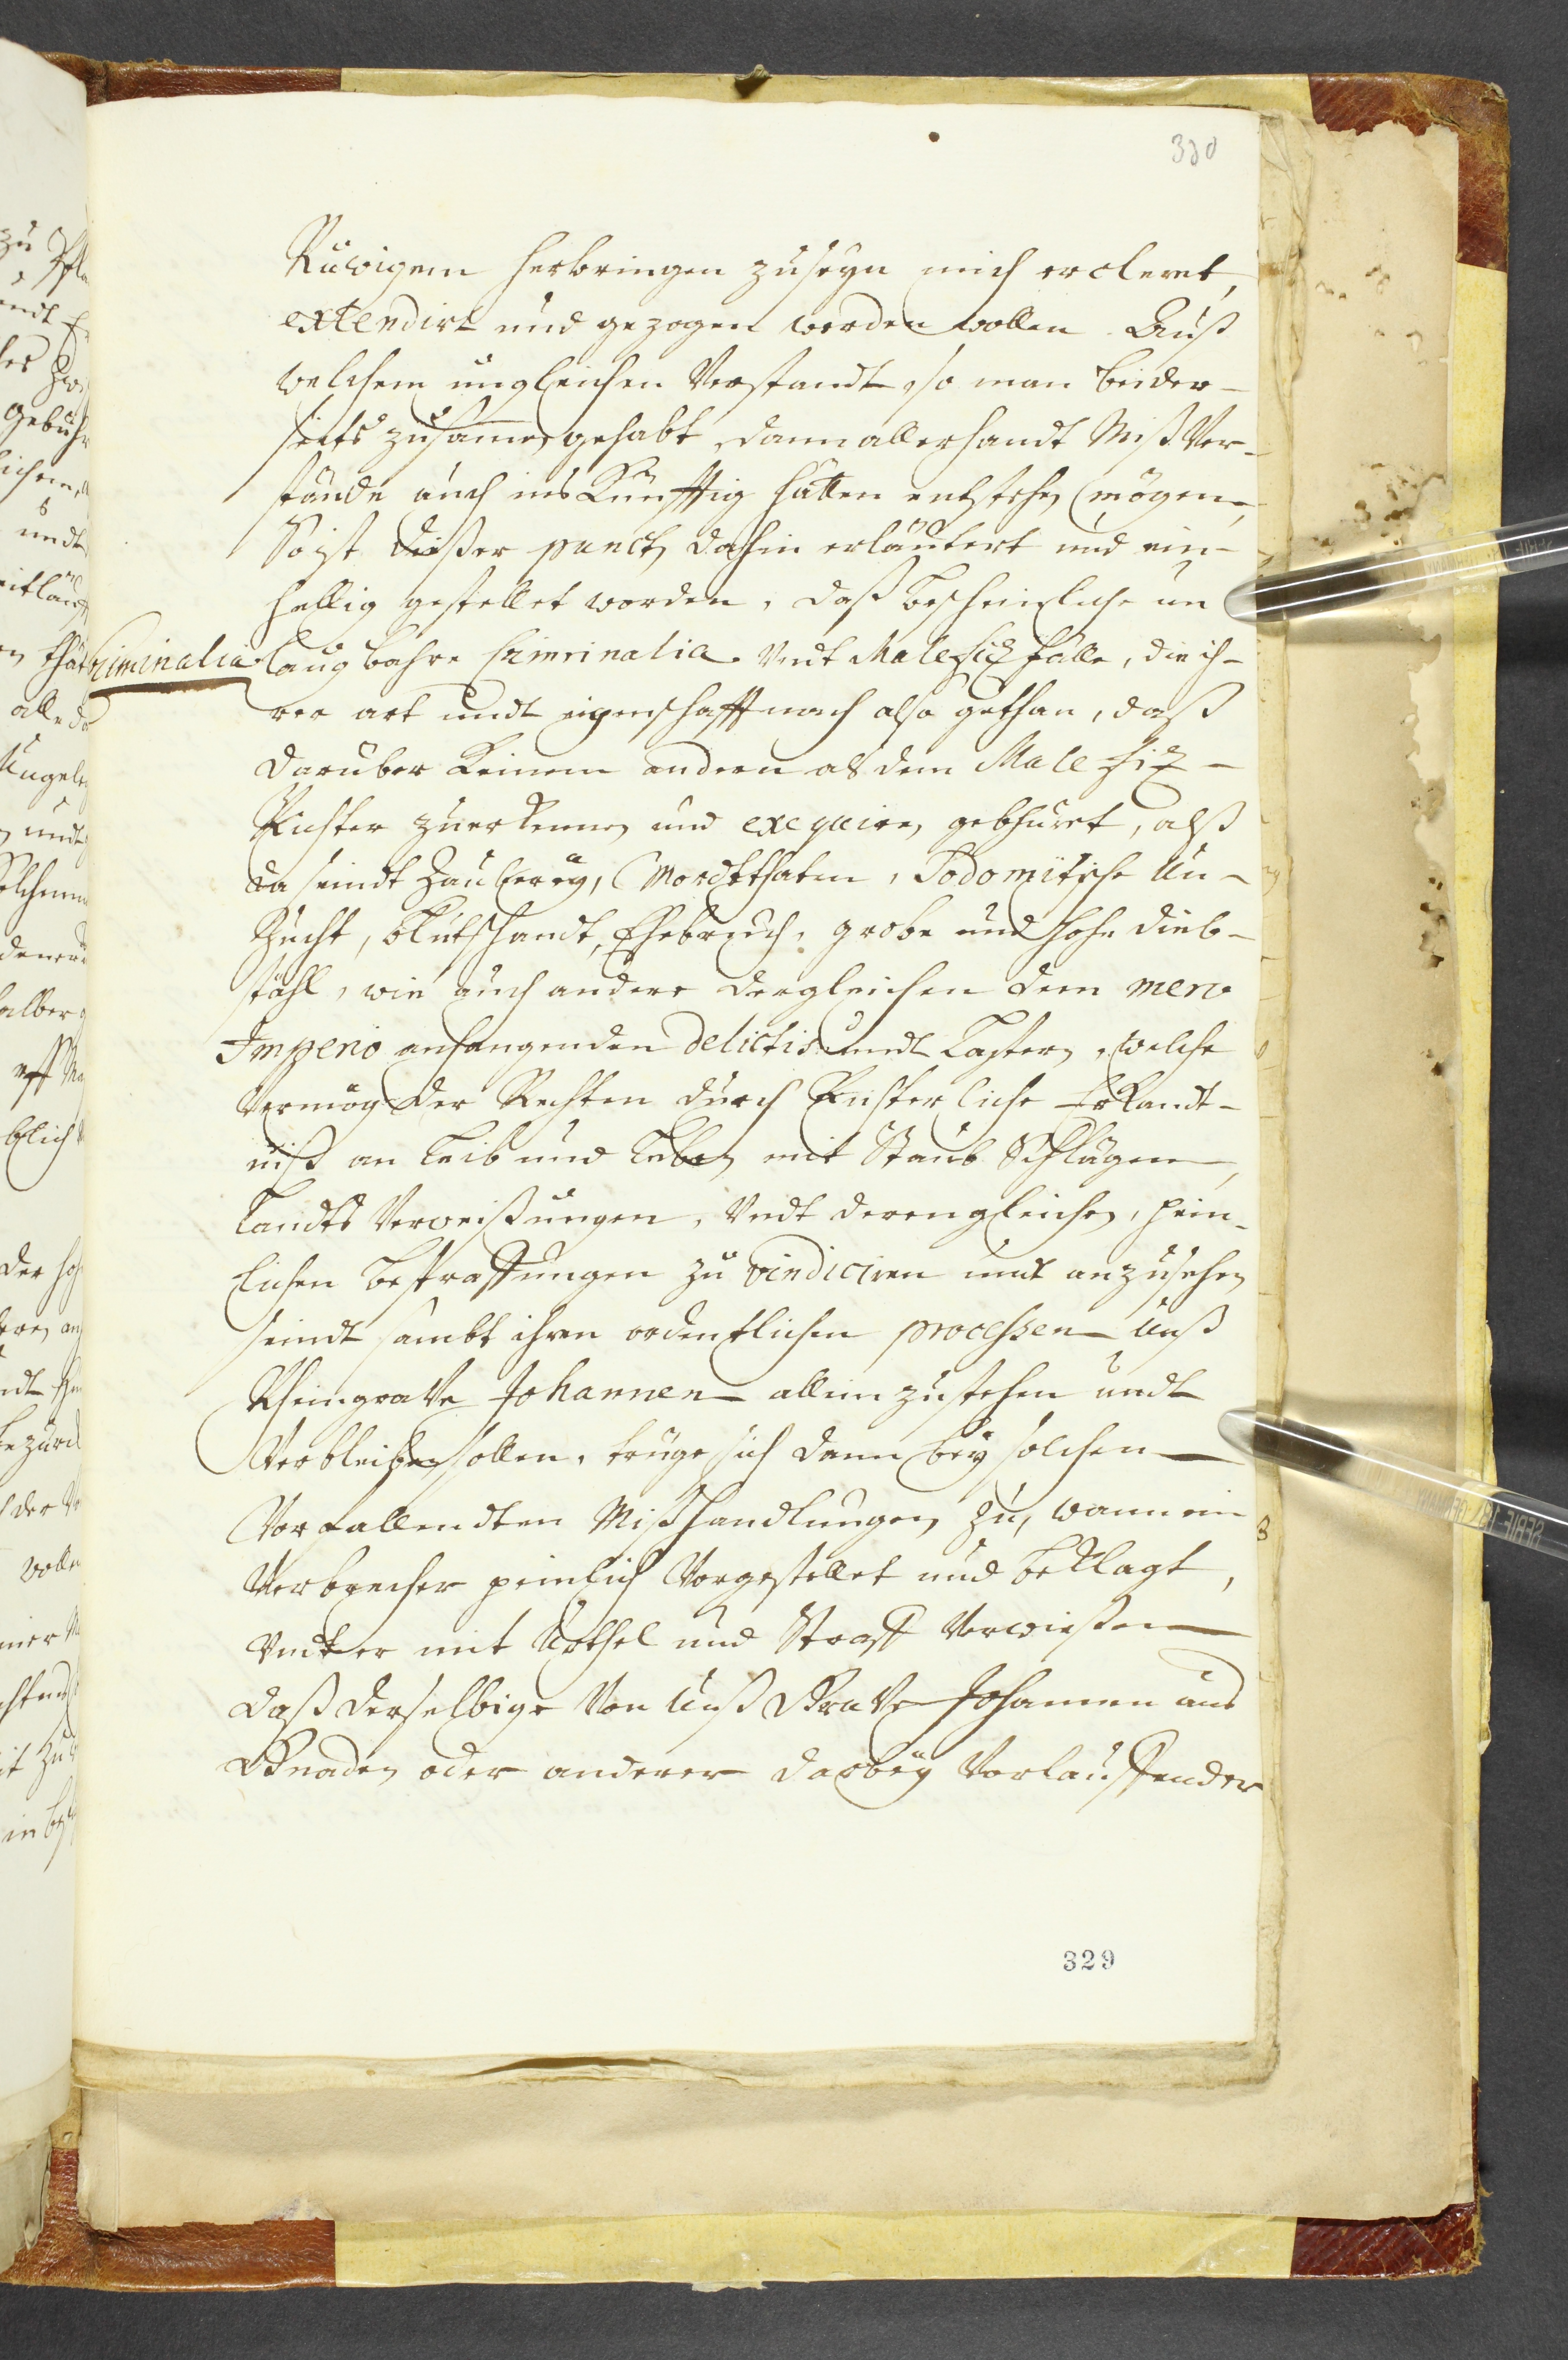 330
Ruwigem herbringen zuseyn mich ercleret,
extendirt und gezogen werden wollen. Auß
welchem ungleichen Verstandt, so man beider-
seits zusamen gehabt, dann allerhandt Miß Ver-
stände auch ins Künfftig hätten entstehen mögen,
So ist dießer punct dahin erläutert und ein-
hellig gestellet worden, daß bescheinliche un
Criminalia
laugbahre Criminalia. Undt Malefiz fälle, die ih-
rer art undt eigenschafft nach also gethan, daß
darüber Keinem andern als dem Malefiz-
Richter zuerkennen und exequiren gebhüret, alß
da seindt Zauberey, Mordtthaten, Sodomitische Un-
Zucht, Blutschandt, Ehebruch, grobe und hohe dieb-
stähl, wie auch andere dergleichen dem mero
Imperio anhangenden delictis undt Lastern, welche
Vermög der Rechten durch Richterliche Erkandt-
niß an Leib und Leben mit Staub Schlägen,
Landts Verweißungen, Undt derengleichen, pein-
lichen bestraffungen zu vindiciren undt anzusehen
seindt sambt ihren ordentlichen processen Unß
Rheingrave Johannen allein zustehen undt
Verbleiben sollen, trüge sich dann bey solchen
Vorfallendten Mißhandlungen zu, wann ein
Verbrecher peinlich Vorgestellet und beklagt,
Undt er mit Urthel und Straff Verwießen
daß derselbige Von Unß Grave Johannen aus
Gnaden oder anderer darbey Vorlauffender
329